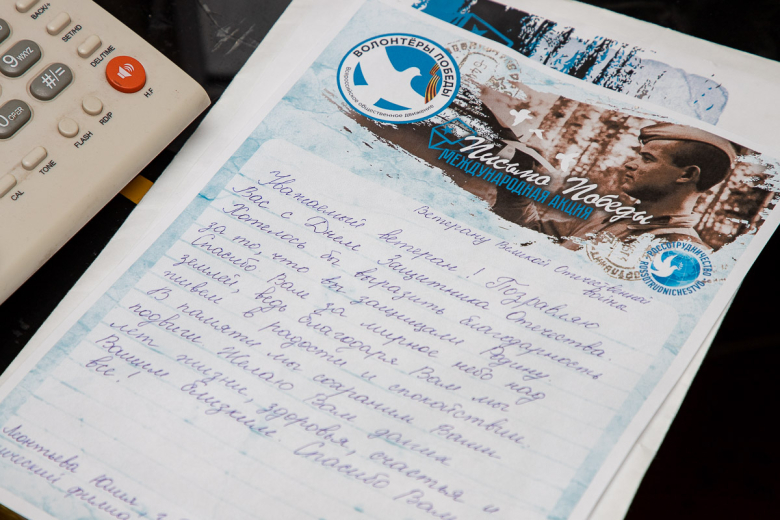 BACK/+
SET/IND
DEL/TIME
9 WXYZ
#/=
OPER
H.F
R/DP
FLASH
TONE
CAL
ВОЛОНТЁРЫ ПОБЕДЫ
Всероссийское общественное движение
Письмо Победы
МЕЖДУНАРОДНАЯ АКЦИЯ
РОССОТРУДНИЧЕСТВО
ROSSOTRUDNICHESTVO
Ветерану Великой Отечественной
войны
Уважаемый ветеран! Поздравляю
Вас с Днём Защитника Отечества.
Хотелось бы выразить благодарность
за то, что вы защищали Родину.
Спасибо Вам за мирное небо над
землей, ведь благодаря Вам мы
живём в радости и спокойствии.
В памяти мы сохраним Ваши
подвиги. Желаю Вам долгих
лет жизни, здоровья, счастья и
Вашим близким. Спасибо Вам
все!
Леонтьева Юлия